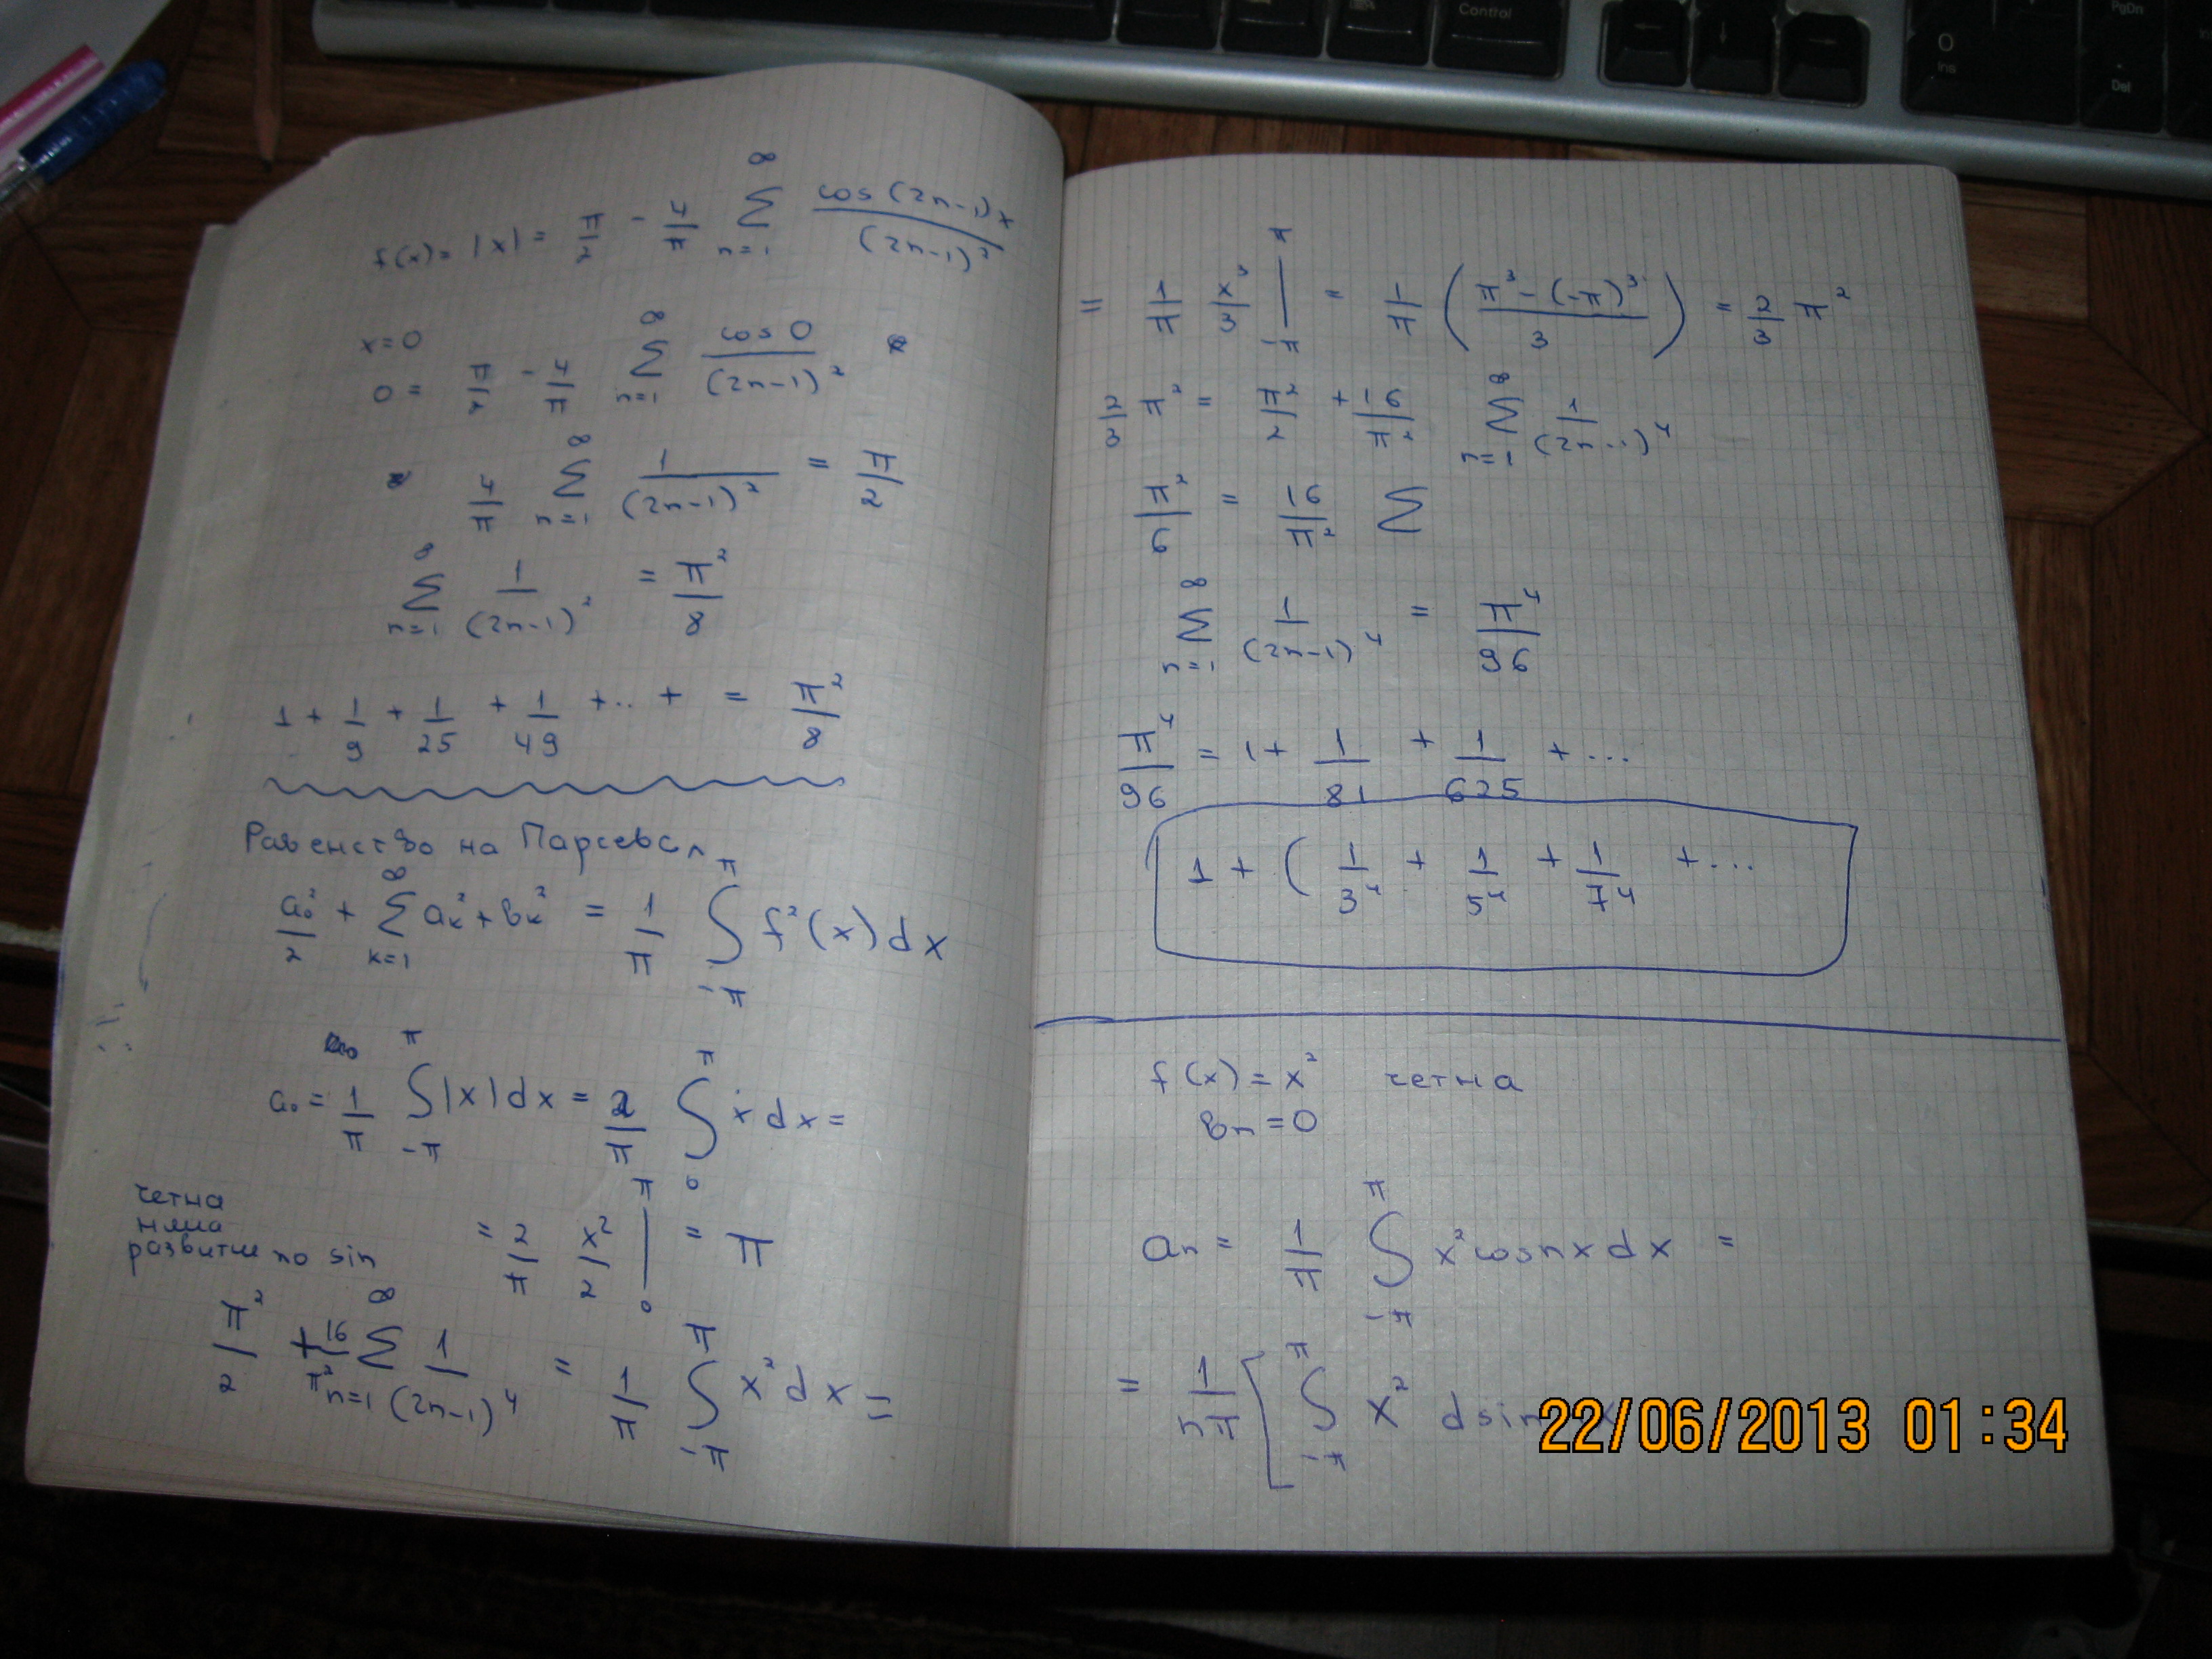 f(x) = |x| = π/2 - 4/π ∑_{n=1}^{∞} cos(2n-1)x / (2n-1)²
x=0
0 = π/2 - 4/π ∑_{n=1}^{∞} cos0 / (2n-1)²
4/π ∑_{n=1}^{∞} 1/(2n-1)² = π/2
∑_{n=1}^{∞} 1/(2n-1)² = π²/8
1 + 1/9 + 1/25 + 1/49 + .. + = π²/8
Равенство на Парсевал
a₀²/2 + ∑_{k=1}^{∞} aₖ² + bₖ² = 1/π ∫_{-π}^{π} f²(x) dx
a₀ = 1/π ∫_{-π}^{π} |x| dx = 2/π ∫_{0}^{π} x dx =
четна
няма
развитие по sin
= 2/π x²/2 |_{0}^{π} = π
π²/2 + 16/π² ∑_{n=1}^{∞} 1/(2n-1)⁴ = 1/π ∫_{-π}^{π} x² dx =
= 1/π x³/3 |_{-π}^{π} = 1/π ( (π³ - (-π)³)/3 ) = 2/3 π²
2/3 π² = π²/2 + 16/π² ∑_{n=1}^{∞} 1/(2n-1)⁴
π²/6 = 16/π² ∑
∑_{n=1}^{∞} 1/(2n-1)⁴ = π⁴/96
π⁴/96 = 1 + 1/81 + 1/625 + ...
1 + ( 1/3⁴ + 1/5⁴ + 1/7⁴ + ...
f(x) = x² четна
bₙ = 0
aₙ = 1/π ∫_{-π}^{π} x² cosnx dx =
= 1/nπ [ ∫_{-π}^{π} x² dsin
22/06/2013 01:34
Control
0
Ins
PgDn
Del